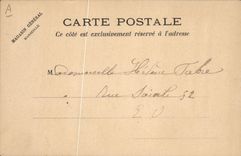 A
MAGASIN GÉNÉRAL
CARTE POSTALE
Ce côté est exclusivement réservé à l'adresse
Mademoiselle Hélène Fabre
Rue 52
E. V.